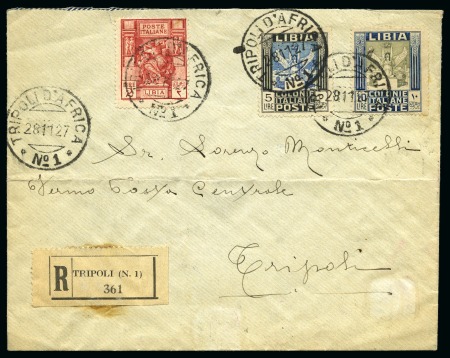 POSTE
ITALIANE
LIBIA
LIBIA
5
LIRE
COLONIE
ITALIANE
POSTE
LIBIA
10
LIRE
COLONIE
ITALIANE
POSTE
TRIPOLI D'AFRICA
28.11.27
Nº 1
TRIPOLI D'AFRICA
28.11.27
Nº 1
28.11
Nº 1
AFRICA
Nº 1
Sr. Lorenzo Monticelli
Fermo Posta Centrale
Tripoli
R TRIPOLI (N. 1)
361